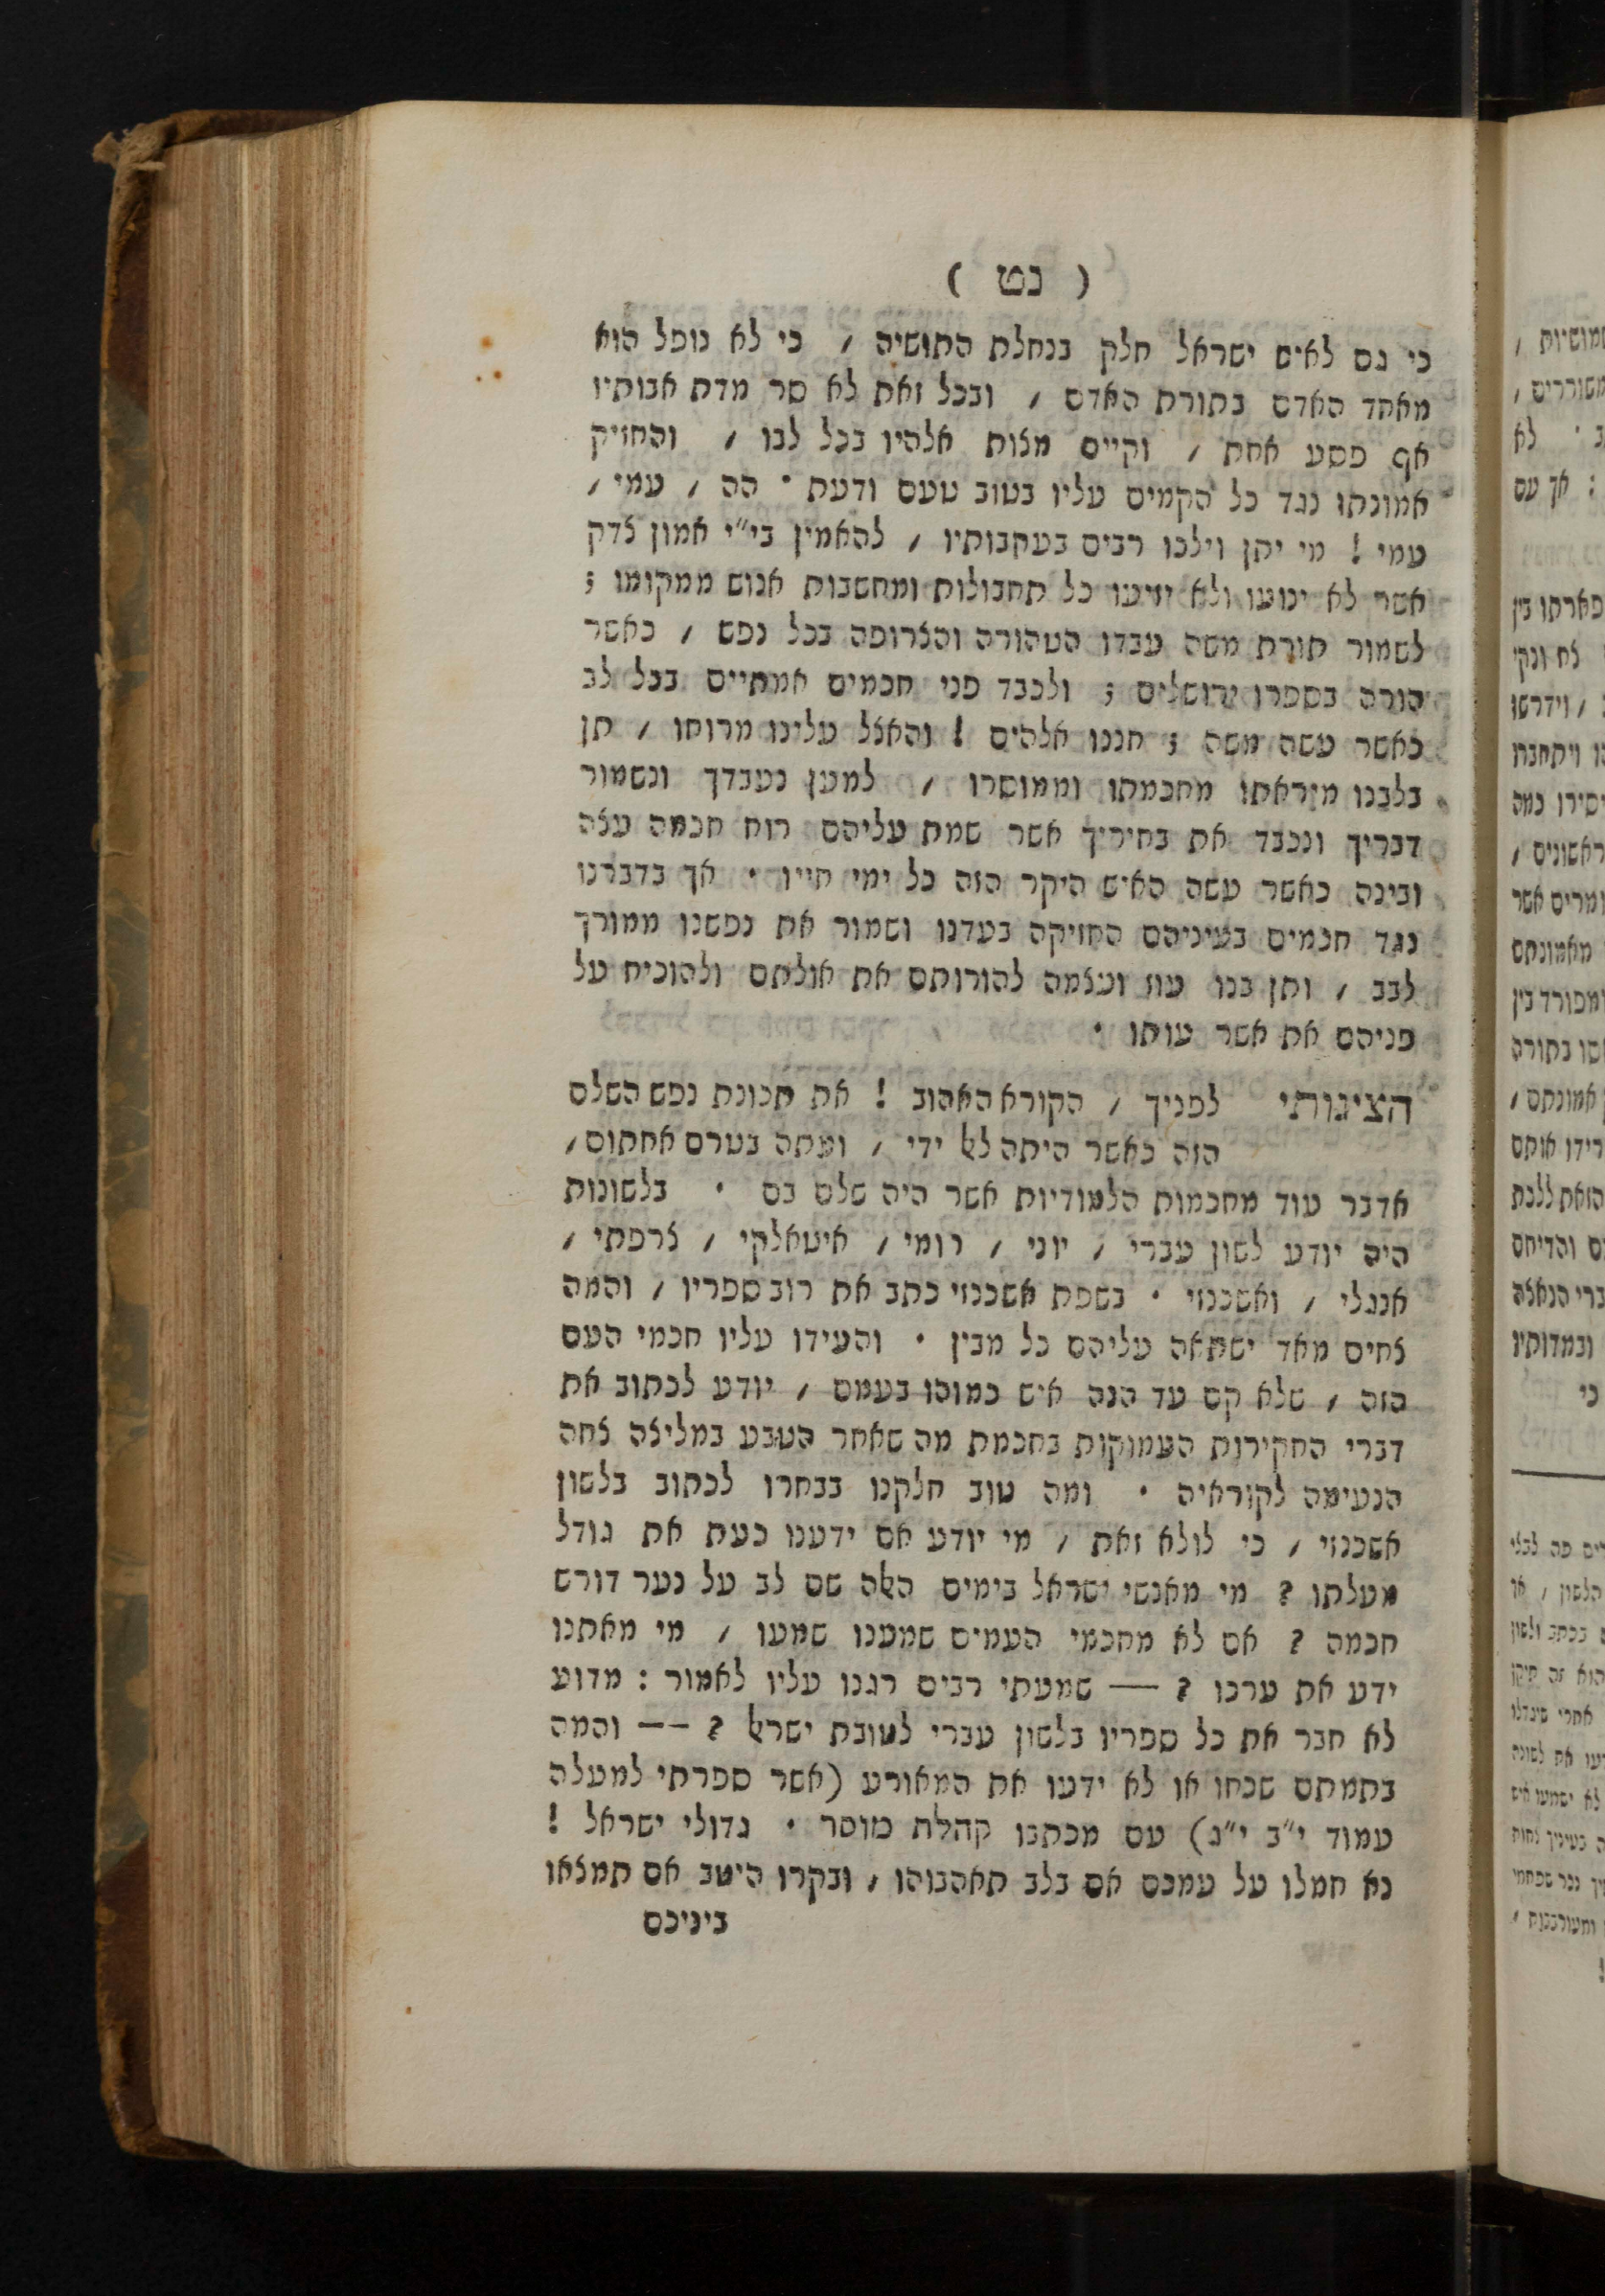 ( נט )
כי גם לאיש ישראל חלק בנחלת התושיה / כי לא נופל הוא
מאחד האדם בתורת האדם / ובכל זאת לא סר מדת אבותיו
אף פסע אחת / וקיים מצות אלהיו בכל לבו / והחזיק
אמונתו נגד כל הקמים עליו בטוב טעם ודעת · הה / עמי /
עמי ! מי יתן וילכו רבים בעקבותיו / להאמין בי״י אמון צדק
אשר לא ינועו ולא יזיעו כל תחבולות ומחשבות אנוש ממקומו ;
לשמור תורת משה עבדו הטהורה והצרופה בכל נפש / כאשר
הורה בספרו ירושלים ; ולכבד פני חכמים אמתיים בכל לב
כאשר עשה משה ; חננו אלהים ! והאצל עלינו מרוחו / תן
בלבנו מיראתו מחכמתו וממוסרו / למען נעבדך ונשמור
דבריך ונכבד את בחיריך אשר שמת עליהם רוח חכמה עצה
ובינה כאשר עשה האיש היקר הזה כל ימי חייו · אך בדברנו
נגד חכמים בעיניהם החזיקה בעדנו ושמור את נפשנו ממורך
לבב / ותן בנו עוז ועצמה להורותם את אולתם ולהוכיח על
פניהם את אשר עותו ·
הציגותי לפניך / הקורא האהוב ! את תכונת נפש השלם
הזה כאשר היתה לאל ידי / ועתה בטרם אחתום /
אדבר עוד מחכמות הלמודיות אשר היה שלם בם · בלשונות
היה יודע לשון עברי / יוני / רומי / איטאלקי / צרפתי /
אנגלי / ואשכנזי · בשפת אשכנזי כתב את רוב ספריו / והמה
צחים מאד ישתאה עליהם כל מבין · והעידו עליו חכמי העם
הזה / שלא קם עד הנה איש כמוהו בעמם / יודע לכתוב את
דברי החקירות העמוקות בחכמת מה שאחר הטבע במליצה צחה
הנעימה לקוראיה · ומה טוב חלקנו בבחרו לכתוב בלשון
אשכנזי / כי לולא זאת / מי יודע אם ידענו כעת את גודל
מעלתו ? מי מאנשי ישראל בימים האלה שם לב על נער דורש
חכמה ? אם לא מחכמי העמים שמענו שמעו / מי מאתנו
ידע את ערכו ? — שמעתי רבים רגנו עליו לאמור : מדוע
לא חבר את כל ספריו בלשון עברי לטובת ישראל ? —— והמה
בתמתם שכחו או לא ידעו את המאורע (אשר ספרתי למעלה
עמוד י״ב י״ג) עם מכתבו קהלת מוסר · גדולי ישראל !
נא חמלו על עמכם אם בלב תאהבוהו / ובקרו היטב אם תמצאו
ביניכם